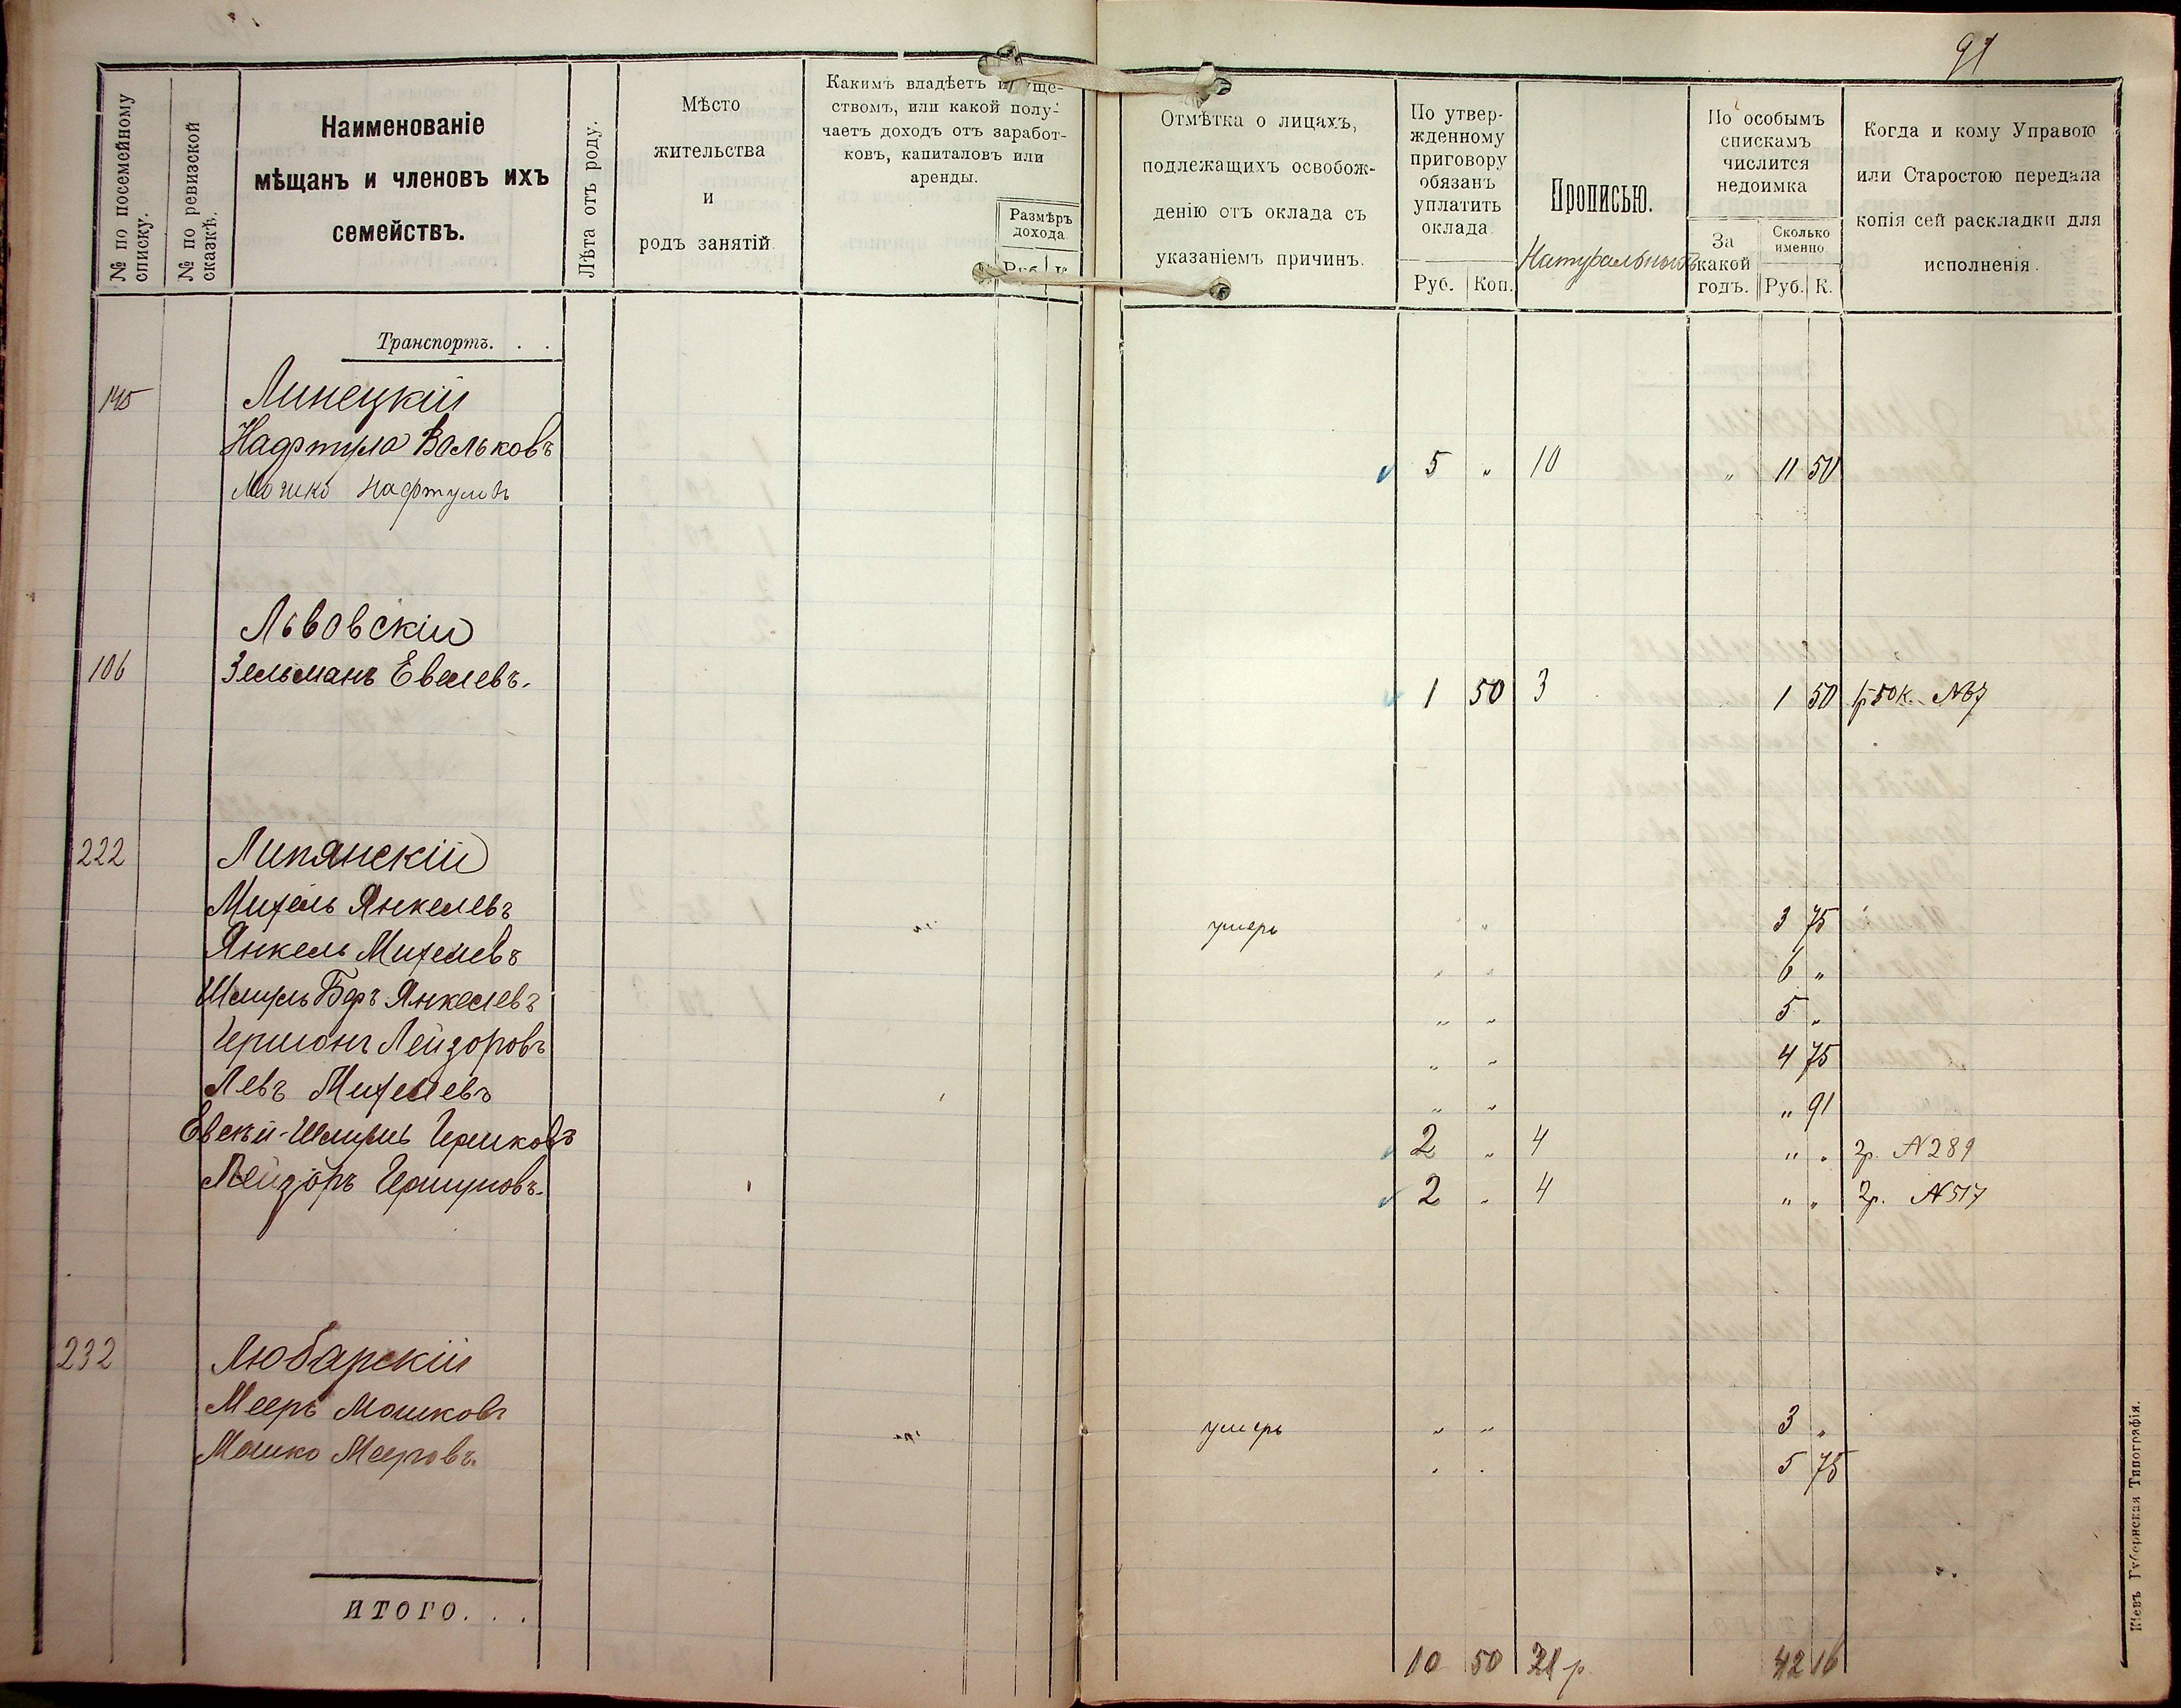 91
№ по посемейному
списку.
№ по ревизской
сказкѣ.
Наименованіе
мѣщанъ и членовъ ихъ
семействъ.
Лѣта отъ роду.
Мѣсто
жительства
и
родъ занятій.
Какимъ владѣетъ имуще-
ствомъ, или какой полу-
чаетъ доходъ отъ заработ-
ковъ, капиталовъ или
аренды.
Размѣръ
дохода.
Руб. К.
Отмѣтка о лицахъ,
подлежащихъ освобож-
денію отъ оклада съ
указаніемъ причинъ.
По утвер-
жденному
приговору
обязанъ
уплатить
оклада.
Руб. Коп.
Прописью.
По особымъ
спискамъ
числится
недоимка
За
какой
годъ.
Сколько
именно.
Руб. К.
Когда и кому Управою
или Старостою передана
копія сей раскладки для
исполненія.
Транспортъ. . .
145 Линецкій
Нафтула Вольковъ 5 „ 10 „ 11 50
Мошко Нафтулов
Львовскій
106 Зельманъ Евелевъ. 1 50 3 1 50 1р 50 к. №67
222 Липянскій
Михель Янкелевъ умерь „ 3 75
Янкель Михелевъ „ „ 6 „
Шмуль Беръ Янкелевъ „ „ 5 „
Гершонъ Лейзоровъ „ „ 4 75
Левъ Михелевъ „ „ „ 91
Евсѣй-Шмуль Гершковъ 2 „ 4 „ „ 2р. №289
Лейзоръ Гершуновъ. 2 „ 4 „ „ 2р. №517
232 Любарскій
Мееръ Мошковъ умерь „ „ 3 „
Мошко Мееровъ. „ „ 5 75
ИТОГО. . .
10 50 21 р 42 16
Кіевъ Губернская Типографія.